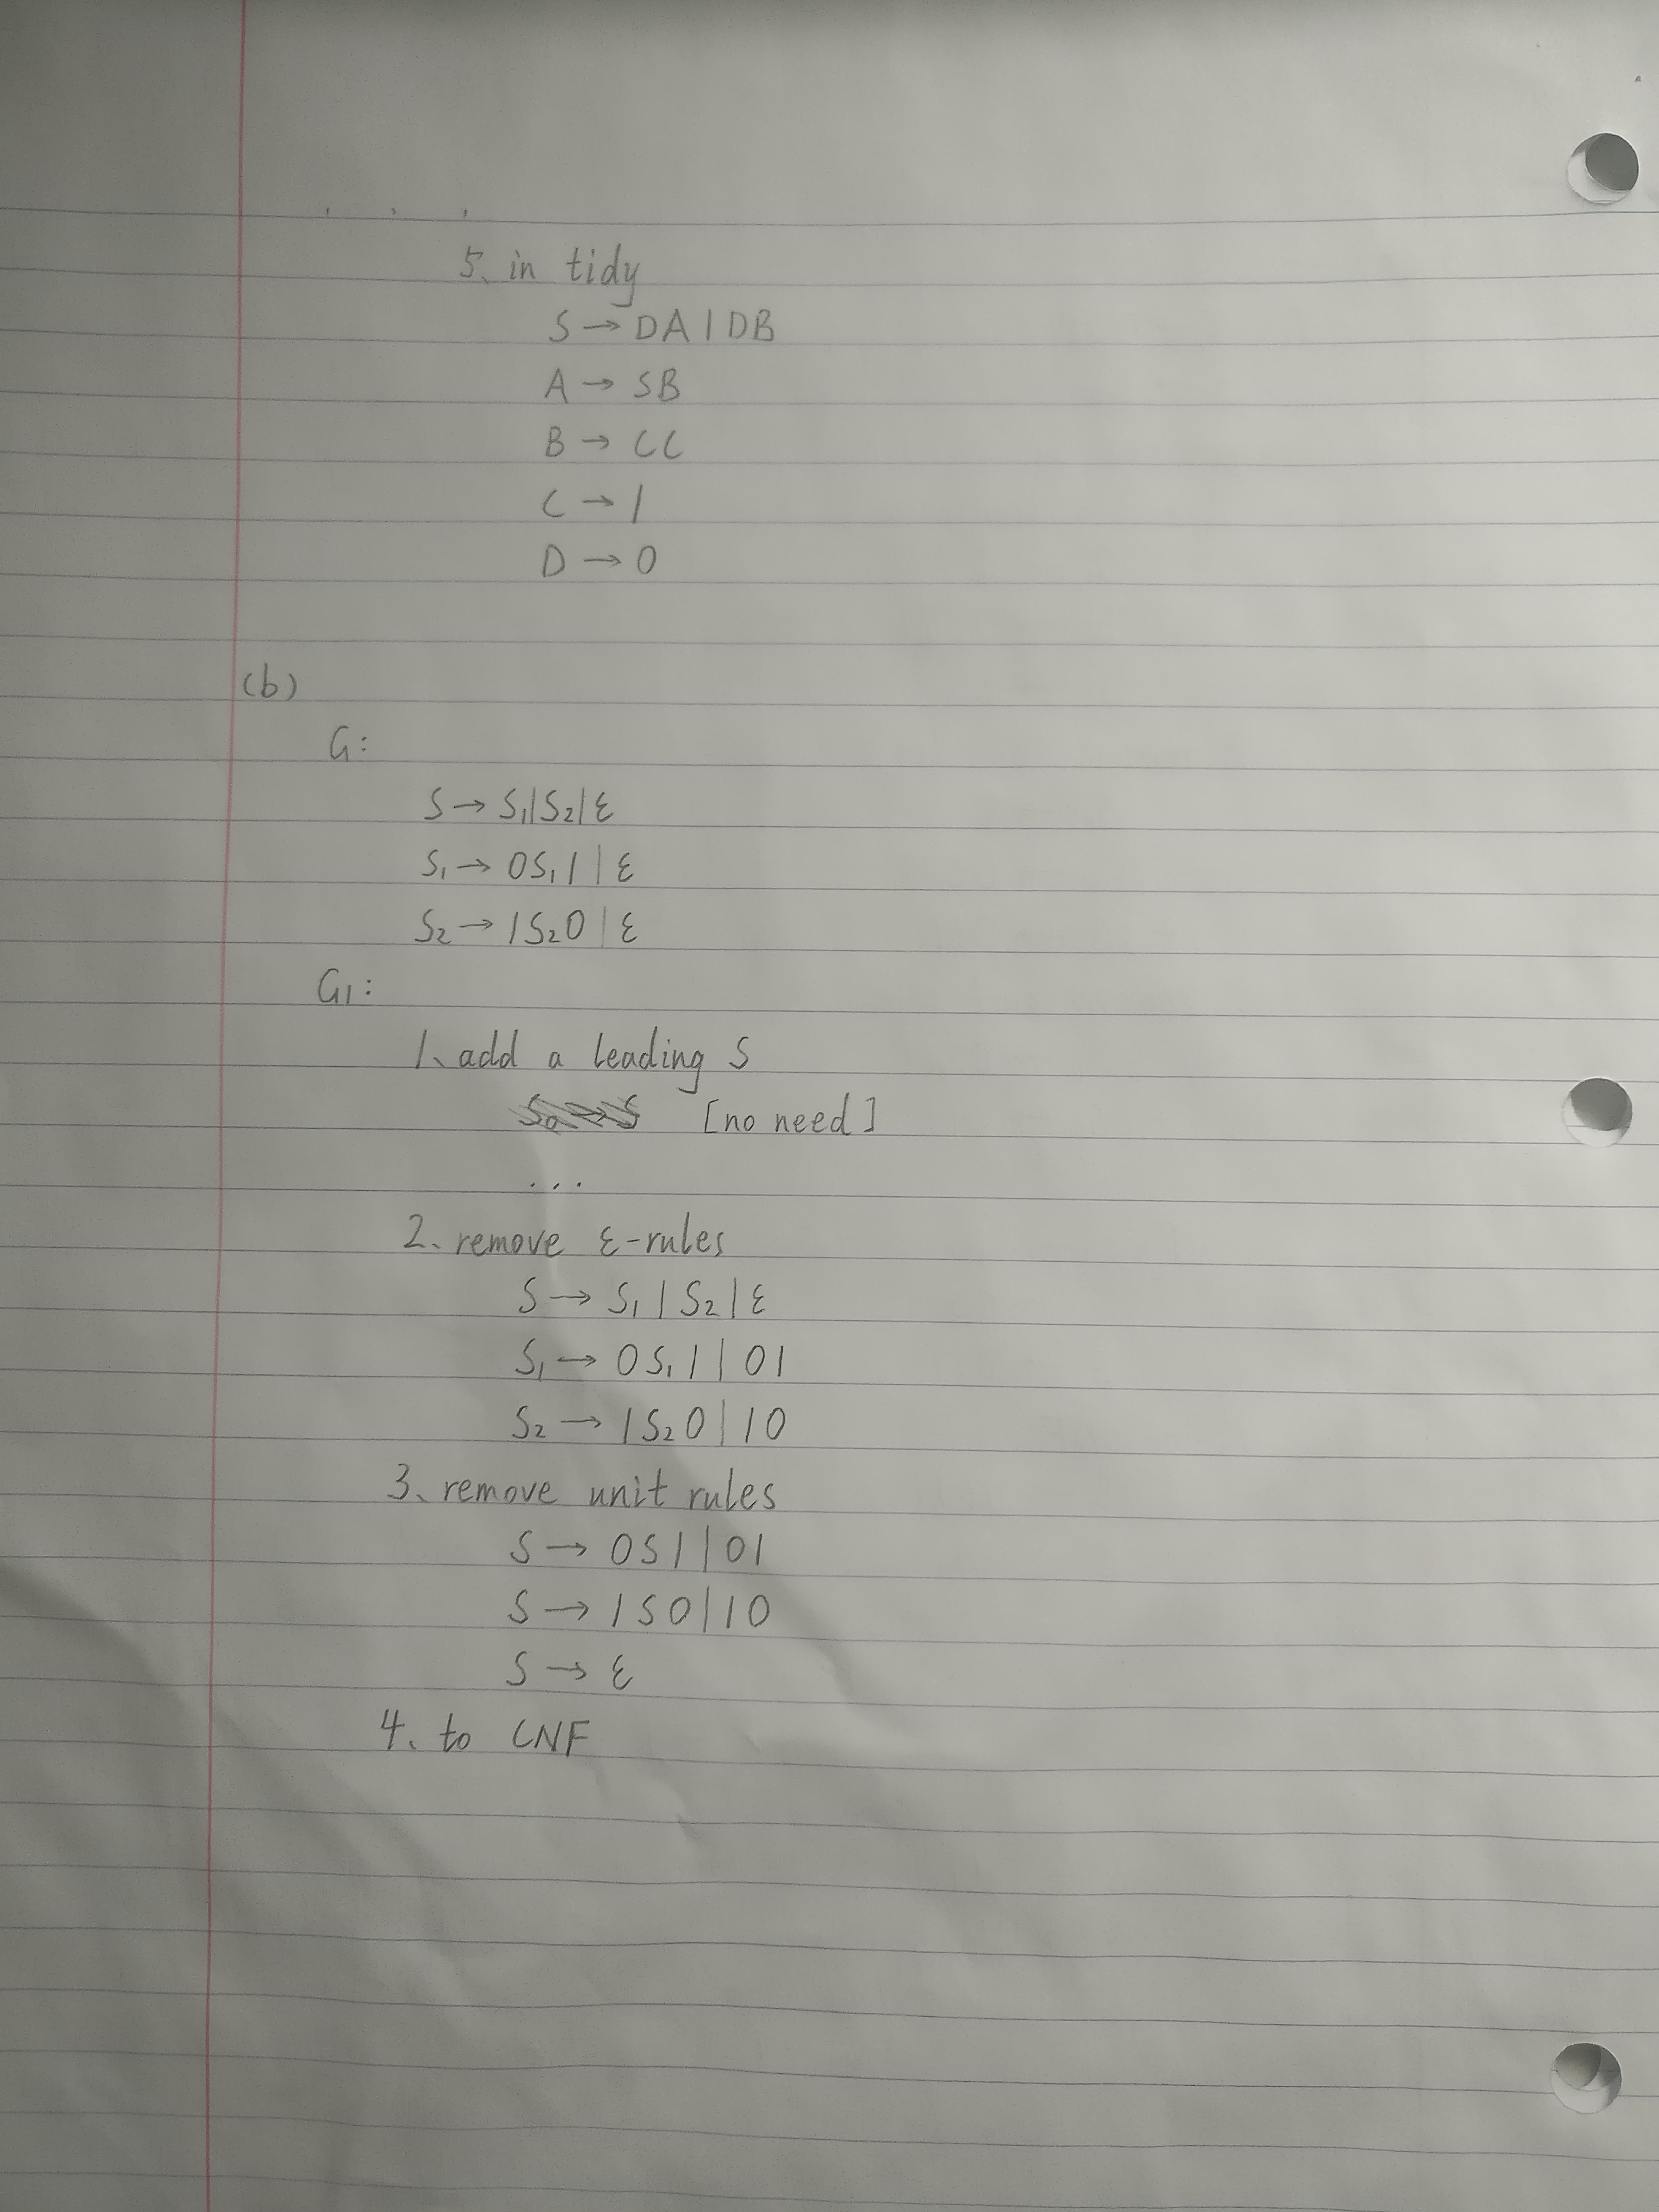 5、in tidy
S → DA | DB
A → SB
B → CC
C → 1
D → 0
(b)
G:
S → S₁|S₂|ε
S₁ → 0S₁1 | ε
S₂ → 1S₂0 | ε
G₁:
1、add a leading S
[no need]
...
2、remove ε-rules
S → S₁ | S₂ | ε
S₁ → 0S₁1 | 01
S₂ → 1S₂0 | 10
3、remove unit rules
S → 0S1 | 01
S → 1S0 | 10
S → ε
4、to CNF